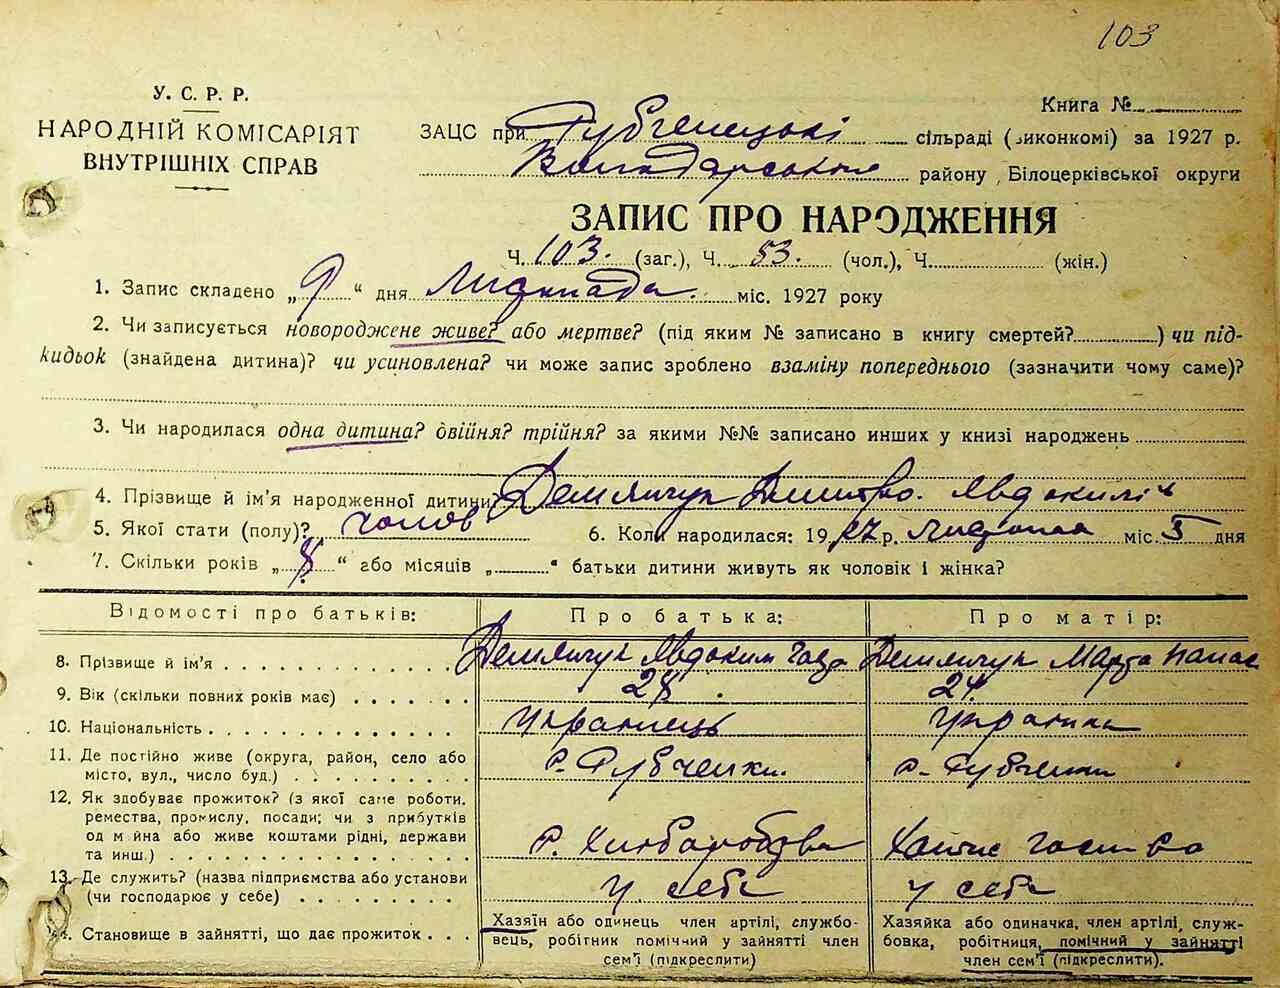 103
У. С. Р. Р.
НАРОДНІЙ КОМІСАРІЯТ
ВНУТРІШНІХ СПРАВ
Книга №
ЗАЦС при Губченецькі сільраді (виконкомі) за 1927 р.
Володарського району, Білоцерківської округи
ЗАПИС ПРО НАРОДЖЕННЯ
Ч. 103. (заг.), Ч. 53. (чол.), Ч. (жін.)
1. Запис складено „9“ дня Листопада. міс. 1927 року
2. Чи записується новороджене живе? або мертве? (під яким № записано в книгу смертей? ) чи під-
кидьок (знайдена дитина)? чи усиновлена? чи може запис зроблено взаміну попереднього (зазначити чому саме)?
3. Чи народилася одна дитина? двійня? трійня? за якими №№ записано инших у книзі народжень
4. Прізвище й ім'я народженної дитини? Демянчук Дмитро.
5. Якої стати (полу)? чолов 6. Коли народилася: 1927 р. листопада міс. 5 дня
7. Скільки років „8“ або місяців „ “ батьки дитини живуть як чоловік і жінка?
Відомості про батьків: Про батька: Про матір:
8. Прізвище й ім'я Демянчук Явдоким Демянчук Марта Панас
9. Вік (скільки повних років має) 28. 24.
10. Національність Украинець Украинка
11. Де постійно живе (округа, район, село або
місто, вул., число буд.) с. Губченки. с. Губченки
12. Як здобуває прожиток? (з якої саме роботи,
ремества, промислу, посади; чи з прибутків
од майна або живе коштами рідні, держави
та инш.) с. Хліборобства Хатнє
13. Де служить? (назва підприємства або установи
(чи господарює у себе) у себе у себе
14. Становище в зайнятті, що дає прожиток
Хазяїн або одинець член артілі, службо-
вець, робітник помічний у зайнятті член
сем'ї (підкреслити)
Хазяйка або одиначка, член артілі, служ-
бовка, робітниця, помічний у зайнятті
член сем'ї (підкреслити).